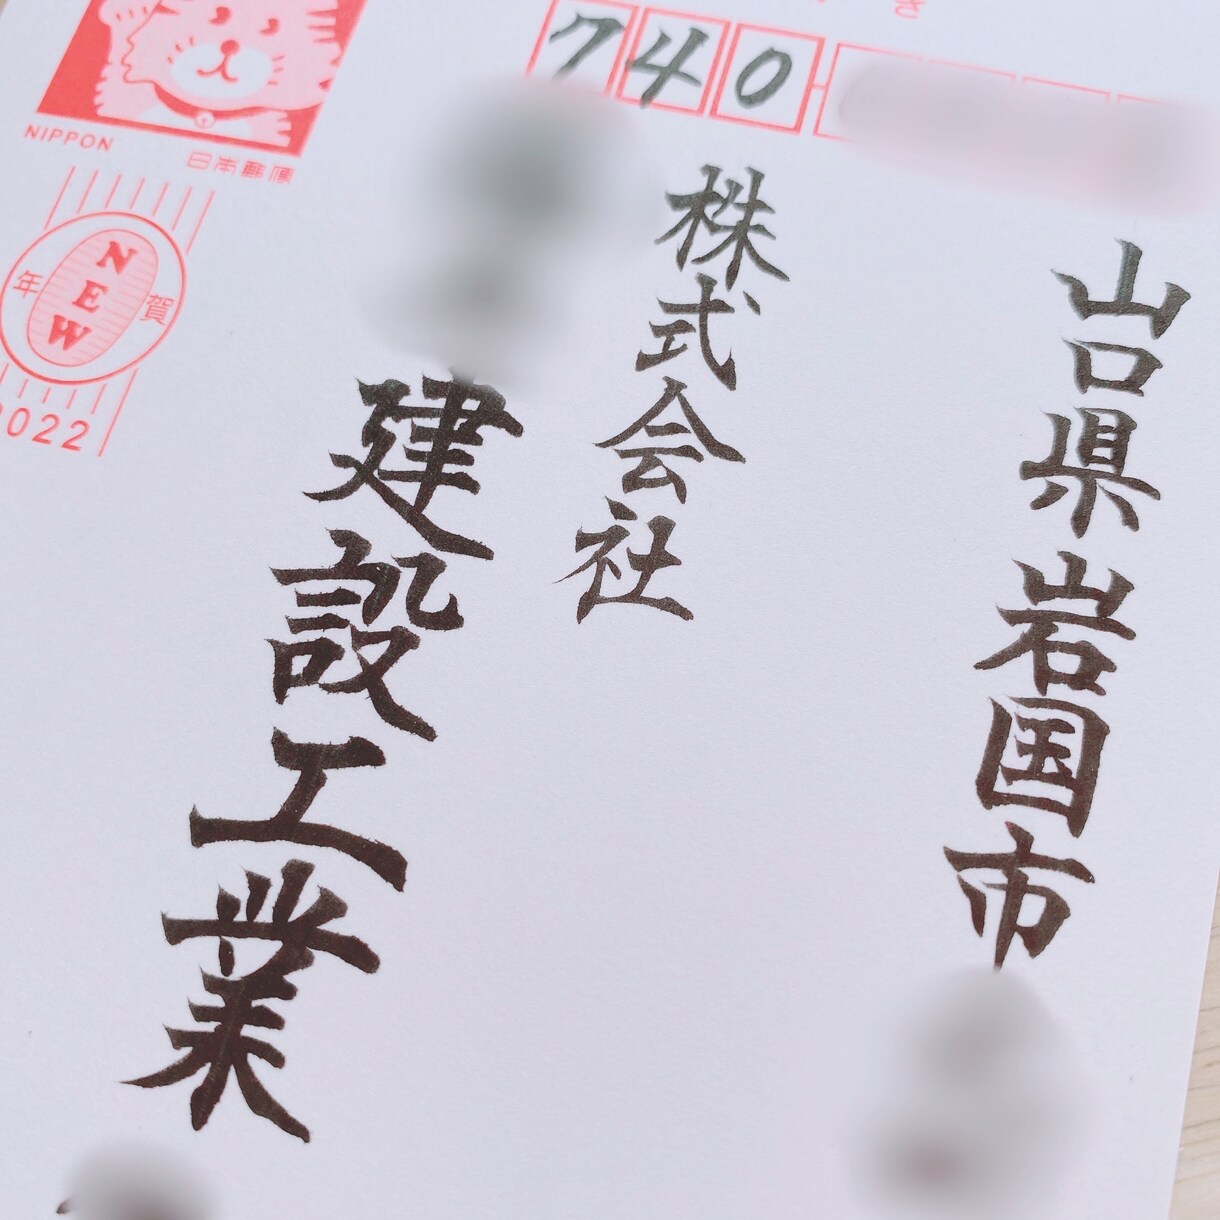 き
740
山口県岩国市
株式会社
建設工業
NIPPON
日本郵便
年 NEW 賀
2022